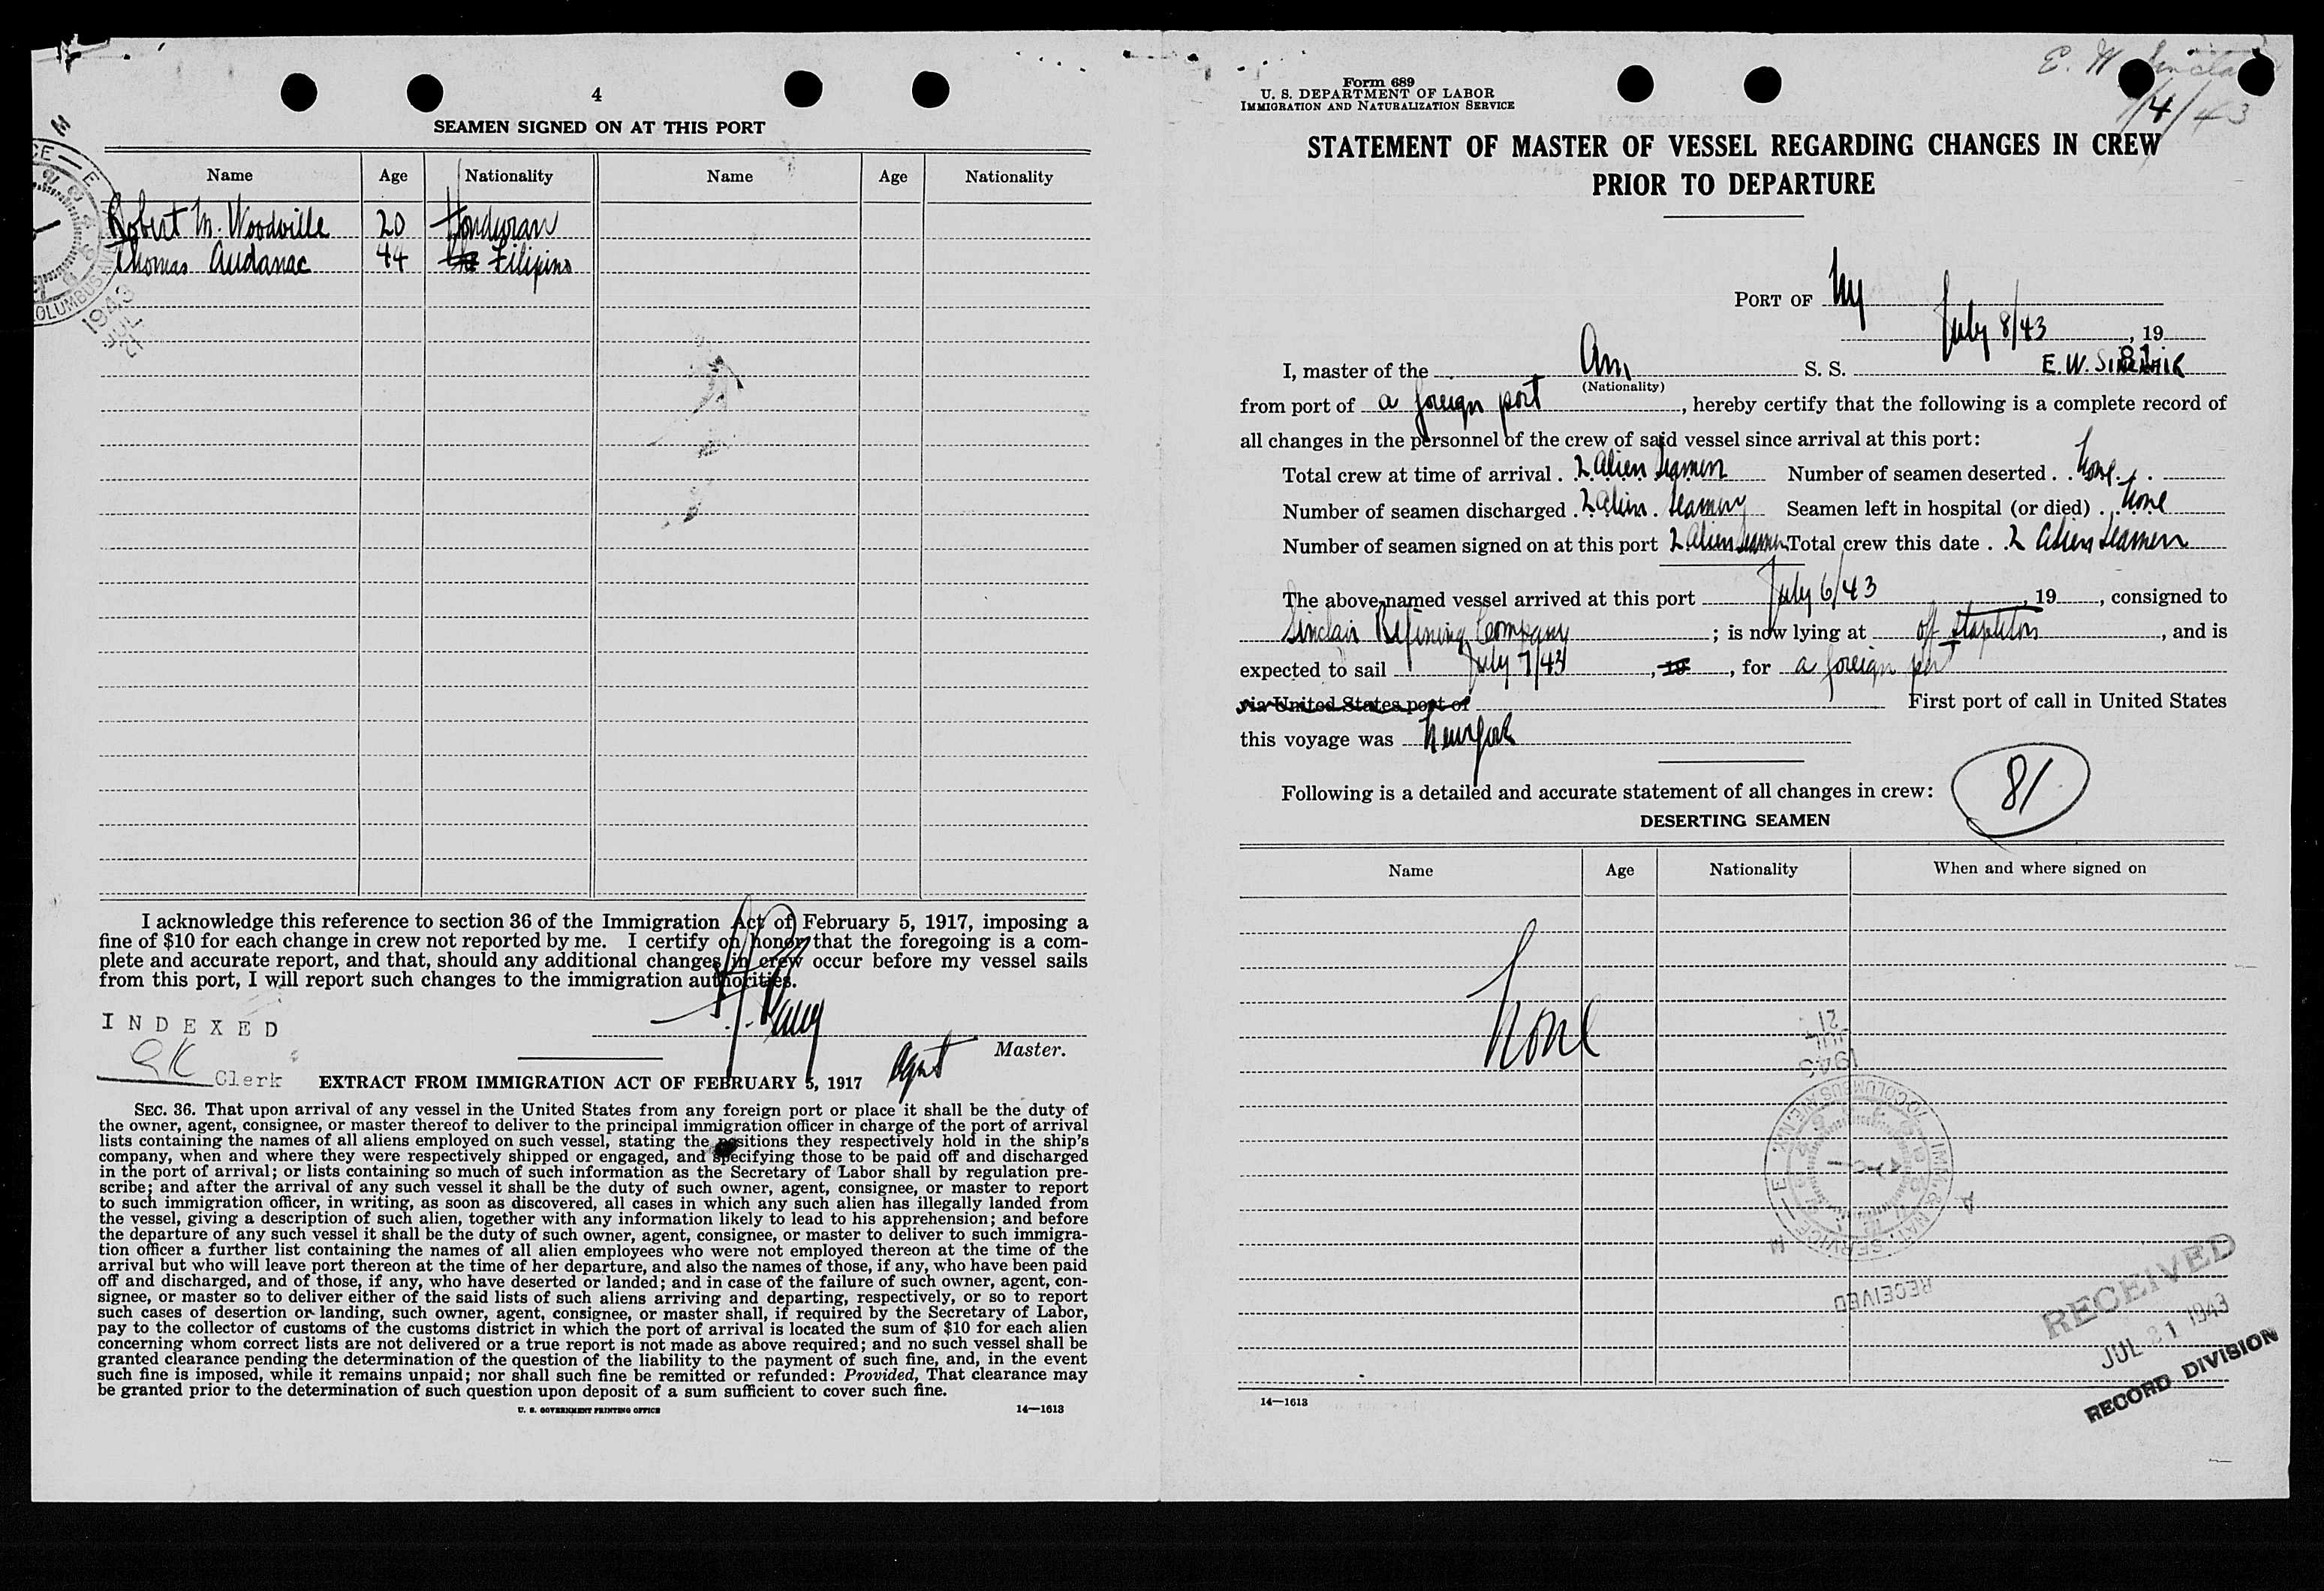 4
SEAMEN SIGNED ON AT THIS PORT
Name Age Nationality Name Age Nationality
Robert M. Woodville 20 Honduran
Thomas Audanac 44 Filipino
I acknowledge this reference to section 36 of the Immigration Act of February 5, 1917, imposing a
fine of $10 for each change in crew not reported by me. I certify on honor that the foregoing is a com-
plete and accurate report, and that, should any additional changes in crew occur before my vessel sails
from this port, I will report such changes to the immigration authorities.
INDEXED
Master.
Agent
Clerk
EXTRACT FROM IMMIGRATION ACT OF FEBRUARY 5, 1917
SEC. 36. That upon arrival of any vessel in the United States from any foreign port or place it shall be the duty of
the owner, agent, consignee, or master thereof to deliver to the principal immigration officer in charge of the port of arrival
lists containing the names of all aliens employed on such vessel, stating the positions they respectively hold in the ship's
company, when and where they were respectively shipped or engaged, and specifying those to be paid off and discharged
in the port of arrival; or lists containing so much of such information as the Secretary of Labor shall by regulation pre-
scribe; and after the arrival of any such vessel it shall be the duty of such owner, agent, consignee, or master to report
to such immigration officer, in writing, as soon as discovered, all cases in which any such alien has illegally landed from
the vessel, giving a description of such alien, together with any information likely to lead to his apprehension; and before
the departure of any such vessel it shall be the duty of such owner, agent, consignee, or master to deliver to such immigra-
tion officer a further list containing the names of all alien employees who were not employed thereon at the time of the
arrival but who will leave port thereon at the time of her departure, and also the names of those, if any, who have been paid
off and discharged, and of those, if any, who have deserted or landed; and in case of the failure of such owner, agent, con-
signee, or master so to deliver either of the said lists of such aliens arriving and departing, respectively, or so to report
such cases of desertion or landing, such owner, agent, consignee, or master shall, if required by the Secretary of Labor,
pay to the collector of customs of the customs district in which the port of arrival is located the sum of $10 for each alien
concerning whom correct lists are not delivered or a true report is not made as above required; and no such vessel shall be
granted clearance pending the determination of the question of the liability to the payment of such fine, and, in the event
such fine is imposed, while it remains unpaid; nor shall such fine be remitted or refunded: Provided, That clearance may
be granted prior to the determination of such question upon deposit of a sum sufficient to cover such fine.
U. S. GOVERNMENT PRINTING OFFICE 14—1613
E. W. Sinclair
Form 689
U. S. DEPARTMENT OF LABOR
IMMIGRATION AND NATURALIZATION SERVICE
STATEMENT OF MASTER OF VESSEL REGARDING CHANGES IN CREW
PRIOR TO DEPARTURE
PORT OF NY
July 8/43, 19
I, master of the Am. S. S. E. W. SINCLAIR
(Nationality)
from port of a foreign port, hereby certify that the following is a complete record of
all changes in the personnel of the crew of said vessel since arrival at this port:
Total crew at time of arrival . 2 alien seamen Number of seamen deserted . . none
Number of seamen discharged . 2 alien seamen Seamen left in hospital (or died) . . none
Number of seamen signed on at this port 2 alien seamen Total crew this date . . 2 alien seamen
The above-named vessel arrived at this port July 6/43, 19, consigned to
Sinclair Refining Company; is now lying at off Stapleton, and is
expected to sail July 7/43, 19, for a foreign port
via United States port of First port of call in United States
this voyage was New York
Following is a detailed and accurate statement of all changes in crew: 81
DESERTING SEAMEN
Name Age Nationality When and where signed on
None
1943
RECEIVED
RECEIVED
JUL 21 1943
RECORD DIVISION
14—1613